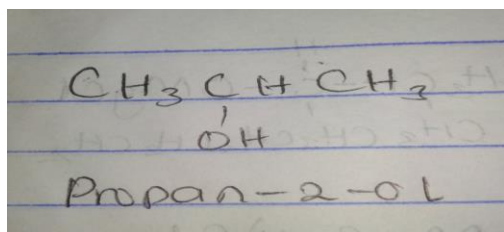 CH3 CH CH3
OH
Propan-2-OL